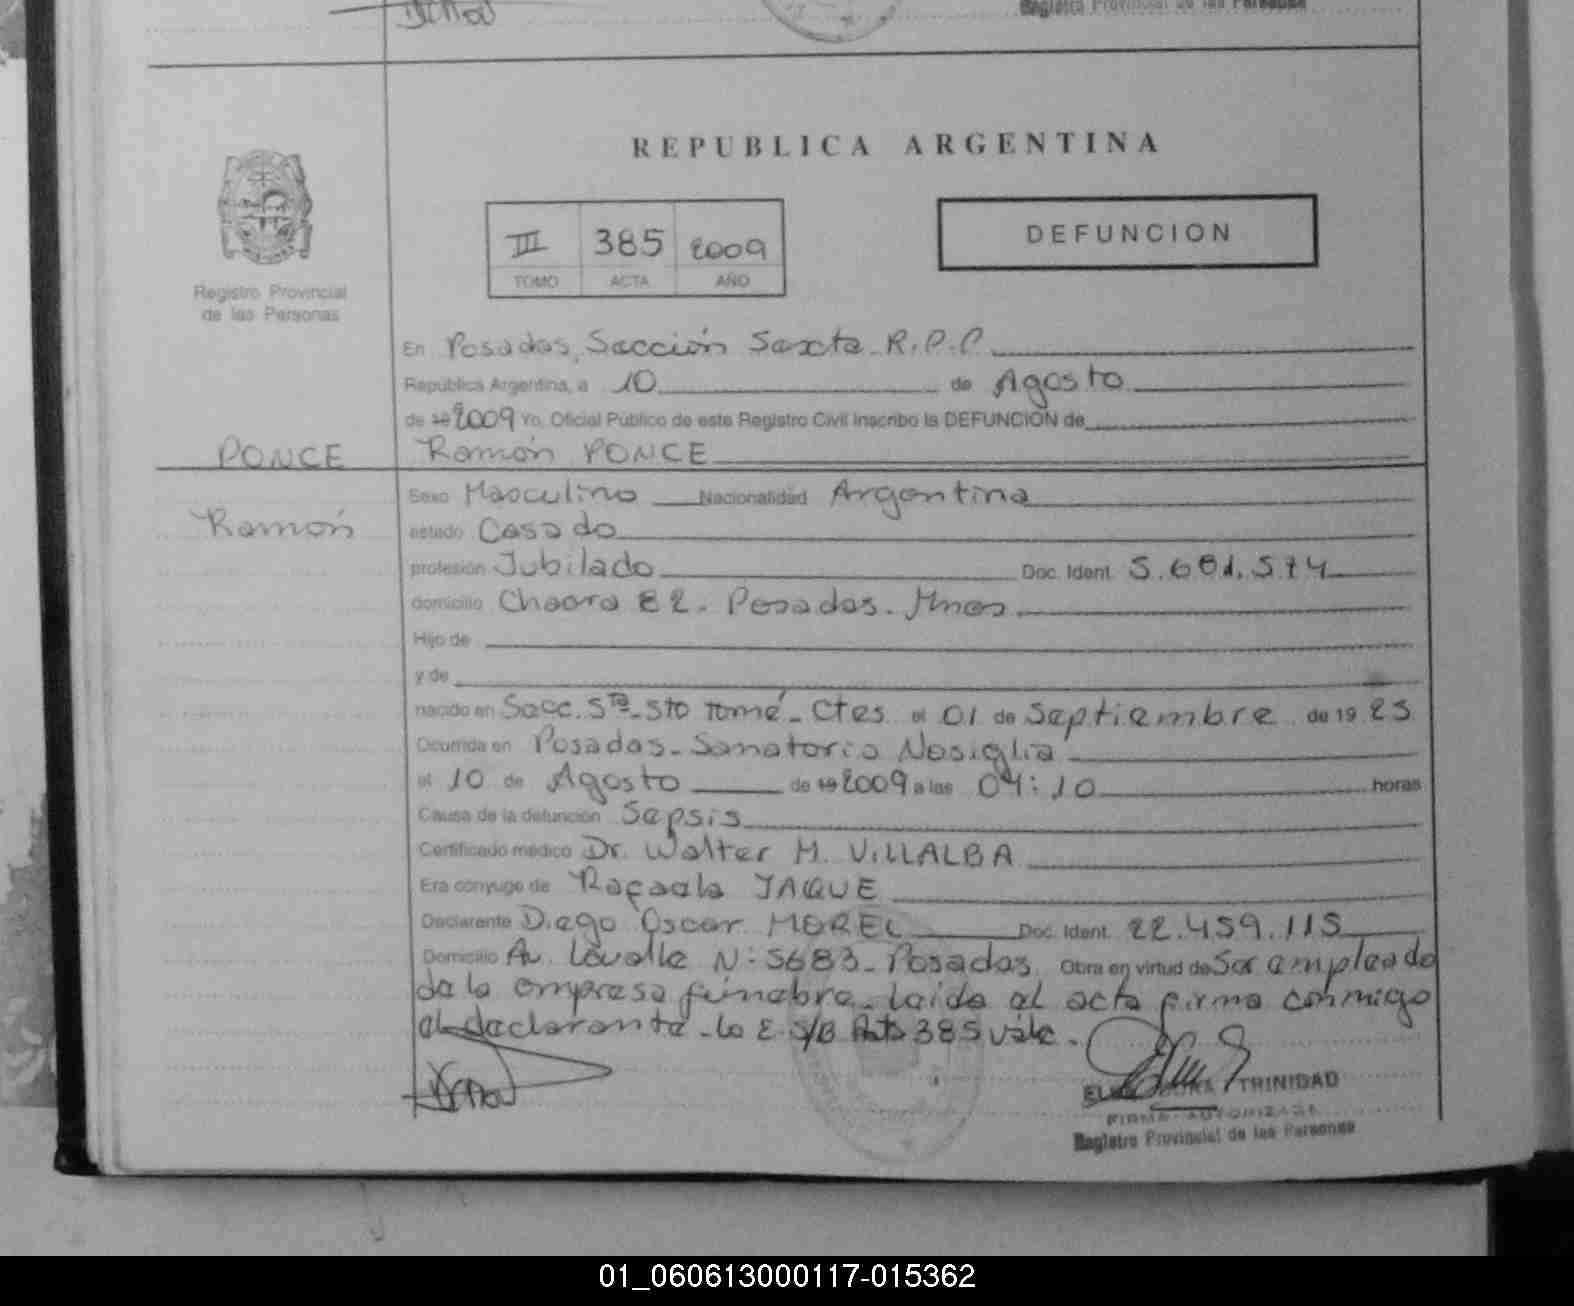 Registro Provincial de las Personas
REPUBLICA ARGENTINA
III 385 2009
TOMO ACTA AÑO
DEFUNCION
Registro Provincial
de las Personas
En Posadas, Sección Sexta - R.P.P.
República Argentina, a 10 de Agosto
de 19 2009 Yo, Oficial Público de este Registro Civil Inscribo la DEFUNCION de
PONCE
Ramón
Ramón PONCE
Sexo Masculino Nacionalidad Argentina
estado Casado
profesión Jubilado Doc. Ident. 5.681.574
domicilio Chacra 82 - Posadas - Mnes
Hijo de
y de
nacido en Secc. 5ta - Sto Tomé - Ctes el 01 de Septiembre de 19 25
Ocurrida en Posadas - Sanatorio Nosiglia
el 10 de Agosto de 19 2009 a las 04:10 horas
Causa de la defunción Sepsis
Certificado médico Dr. Walter M. VILLALBA
Era cónyuge de Rafaela JAQUE
Declarante Diego Oscar MOREL Doc. Ident. 22.459.115
Domicilio Av. Lavalle N: 5683 - Posadas Obra en virtud de Ser empleado
de la empresa fúnebre - Leída el acta firma conmigo
el declarante - lo E. S/B Acta 385 vale -
TRINIDAD
FIRMA AUTORIZADA
Registro Provincial de las Personas
01_060613000117-015362